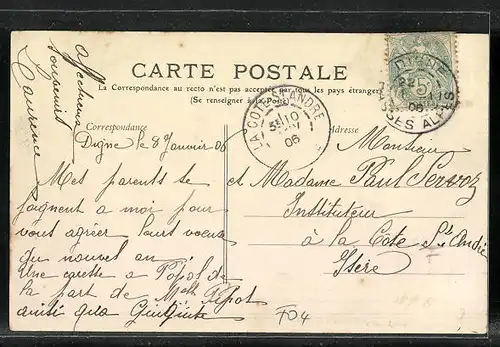 CARTE POSTALE
La Correspondance au recto n'est pas acceptée par tous les pays étrangers
(Se renseigner à la Poste)
Correspondance
Adresse
DIGNE
BASSES ALPES
06
5
LA COTE ST ANDRE
10
06
Affectueux
souvenirs
Laurence
Digne le 8 Janvier 06
Mes parents se
joignent a moi pour
vous agréer leurs voeux
du nouvel an.
Une caresse a Popol de
la part de Melle Pépot
ainsi que
Monsieur
et Madame Paul
Instituteur
à la Côte St André
Isère
F04